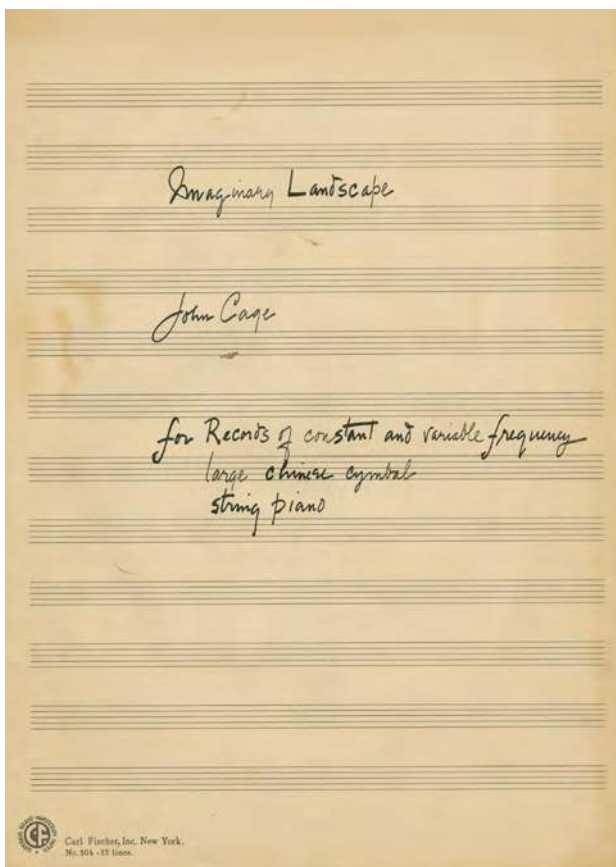 Imaginary Landscape
John Cage
for Records of constant and variable frequency
large chinese cymbal
string piano
Carl Fischer, Inc. New York.
No. 104 - 12 lines.